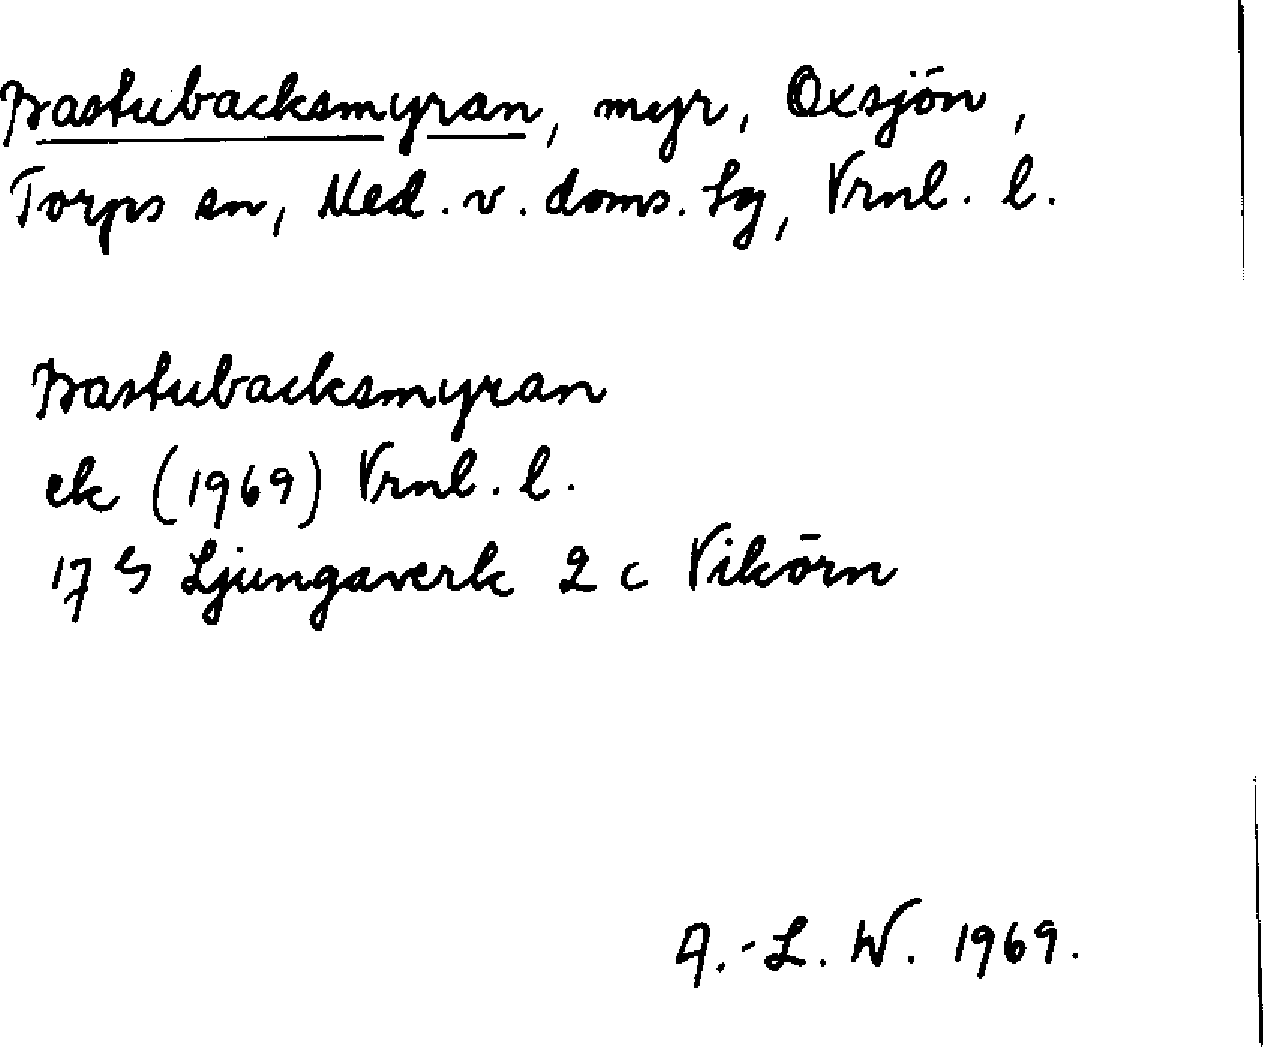 Bastubacksmyran, myr, Oxsjön,
Torps sn, Med. v. doms. tg, Vrnl. l.
Bastubacksmyran
ek (1969) Vrnl. l.
17 G Ljungaverk 2 c Vikörn
A.-L. W. 1969.